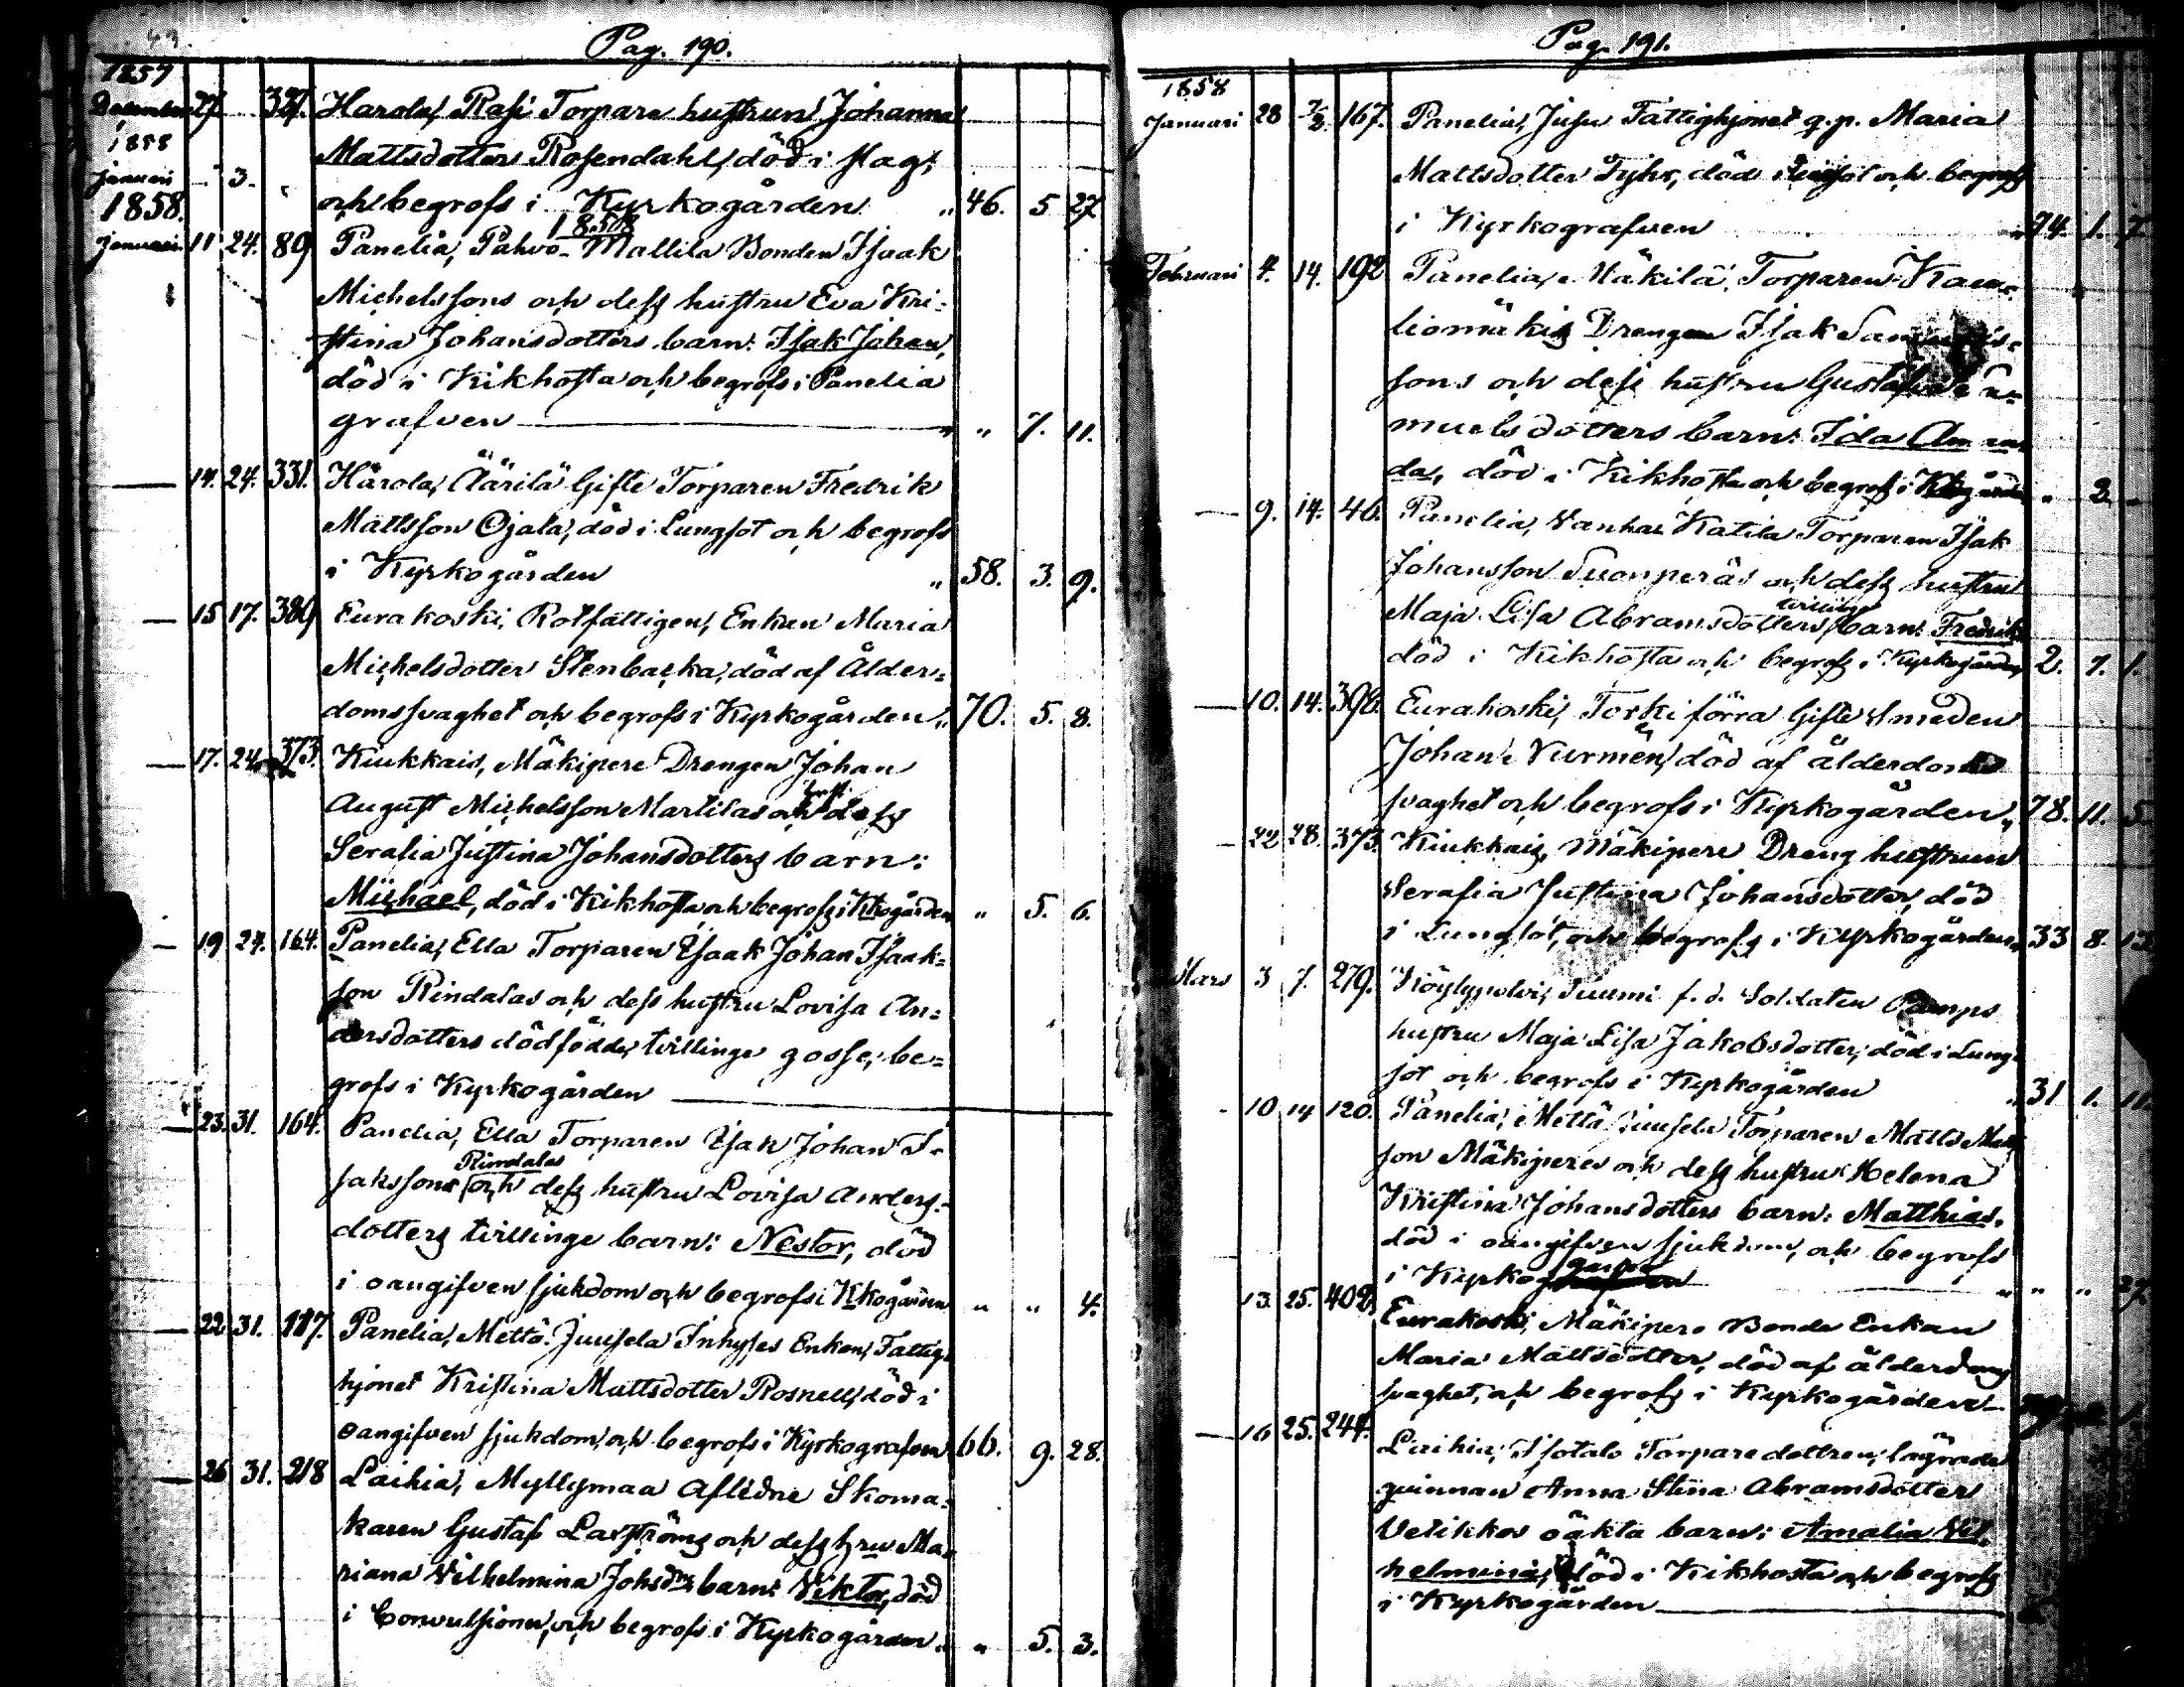 Pag. 190.
1857
December 27. 327. Harola, Rasi Torpare hustrun Johanna
1858
Mattsdotter Rosendahl, död i slag,
januari 3. och begrofs i Kyrkogården " 46. 5 27
1858.
1858
Januari 11 24. 89 Panelia, Pahvo-Mallila Bonden Isaak
Michelssons och dess hustru Eva Kri-
stina Johansdotters barn: Isak Johan,
död i Kikhosta och begrofs i Panelia
grafven " " 7. 11.
— 14. 24. 331. Härola, Äärilä Gifte Torparen Fredrik
Mattsson Ojala, död i Lungsot och begrofs
i Kyrkogården " 58. 3. 9.
— 15 17. 389 Eurakoski, Rotfattigen, Enkan Maria
Michelsdotter Stenbacka, död af Ålder-
domssvaghet och begrofs i Kyrkogården " 70. 5. 8.
— 17. 24. 373. Kiukkais, Mäkipere Drengen Johan
August Michelsson Martilas och dess
Serafia Justina Johansdotters barn:
Michael, död i Kikhosta och begrofs i Kkogården " 5. 6.
— 19 24. 164. Panelia, Ella Torparen Isaak Johan Isaak-
son Rindalas och dess hustru Lovisa An-
dersdotters dödfödde tvillinge gosse, be-
grofs i Kyrkogården
— 23. 31. 164. Panelia, Ella Torparen Isak Johan I-
Rindalas
sakssons och dess hustru Lovisa Anders-
dotters tvillinge barn: Nestor, död
i oangifven sjukdom och begrofs i Kkogården " " 4.
— 22 31. 117. Panelia, Mettä-Juusela Inhyses Enkan, Fattig-
hjonet Kristina Mattsdotter Rosnell, död i
oangifven sjukdom och begrofs i Kyrkografven 66. 9. 28.
— 26 31. 218 Laihia, Myllymaa Aflidne Skoma-
karen Gustaf Laxströms och dess hru Ma-
riana Vilhelmina Johsdrs barn: Viktor, död
i Convulsioner, och begrofs i Kyrkogården " " 5. 3.
Pag. 191.
1858
Januari 28 7/2. 167. Panelia, Jusu Fattighjonet q.p. Maria
Mattsdotter Fyhr, död i och begrofs
i Kyrkografven " 74. 1. 7
Februari 4. 14. 192 Panelia, Mäkilä, Torparen
liomäkis Drengen Isak
sons och dess hustru
muelsdotters barn: Ida Aman
da, död i Kikhosta och begrofs i Kkogården " 2 -
— 9. 14. 46. Panelia, Vanha Katila Torparen Isak
Johansson Suonperäs och dess hustru
tvilling
Maja Lisa Abramsdotters barn: Fredrik
död i Kikhosta och begrofs i Kyrkogården 2. 7. 1.
— 10. 14. 398. Eurakoski, Torki förra Gifte Smeden
Johan Nurmén, död af ålderdoms
svaghet och begrofs i Kyrkogården " 78. 11. 5
— 22 28. 373. Kiukkais, Mäkipere Dreng hustrun
Serafia Justina Johansdotter, död
i Lungsot, och begrofs i Kyrkogården " 33 8. 13
Mars 3 7. 279. Köylypolvi, Tuumi f. d. Soldaten Pamps
hustru Maja Lisa Jakobsdotter, död i Lung-
sot och begrofs i Kyrkogården " 31 1. 11.
10 14 120. Panelia, Mettä Juusela Torparen Matts Matts
son Mäkiperes och dess hustru Helena
Kristina Johansdotters barn: Matthias,
död i oangifven sjukdom, och begrofs
i Kyrkogården " " " 27.
13. 25. 402. Eurakoski, Mäkipere Bonde Enkan
Maria Mattsdotter, död af ålderdoms
svaghet, och begrofs i Kyrkogården
— 16 25. 244. Laihia, Isotalo Torparedottren, lägrade
qvinnan Anna Stina Abramsdotter
Velikkas oäkta barn: Amalia Vil-
helmina, död i Kikhosta och begrofs
i Kyrkogården